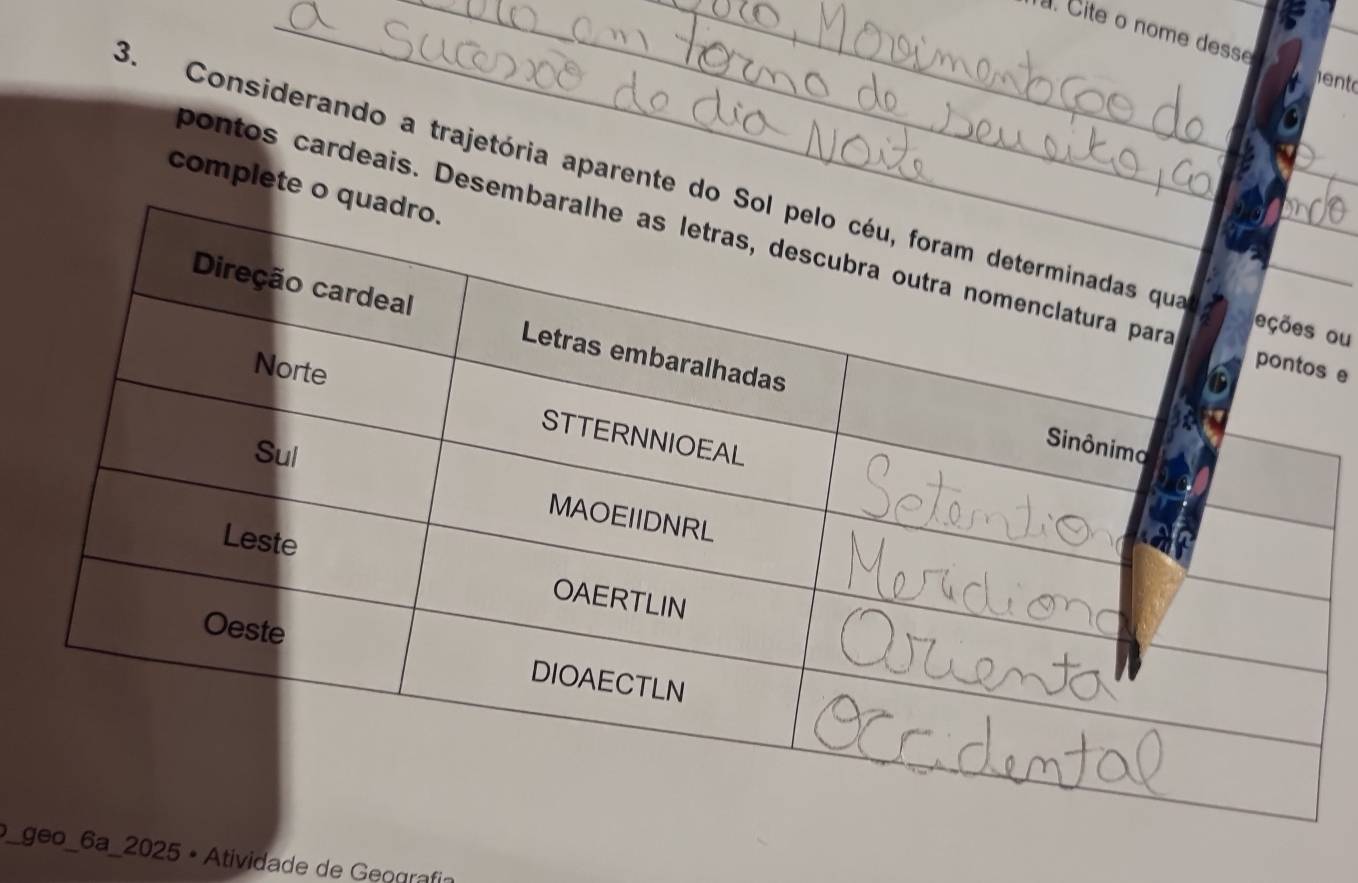 a. Cite o nome desse
mento
Movimentoçoe do
em torno de seu eixo,
a sucessoe do dia Noite
3. Considerando a trajetória aparente do Sol pelo céu, foram determinadas qua eções ou
pontos cardeais. Desembaralhe as letras, descubra outra nomenclatura para pontos e
complete o quadro.
Direção cardeal Letras embaralhadas Sinônimo
Norte STTERNNIOEAL Setention
Sul MAOEIIDNRL Meridiona
Leste OAERTLIN Orienta
Oeste DIOAECTLN Occidental
_geo_6a_2025 • Atividade de Geografia